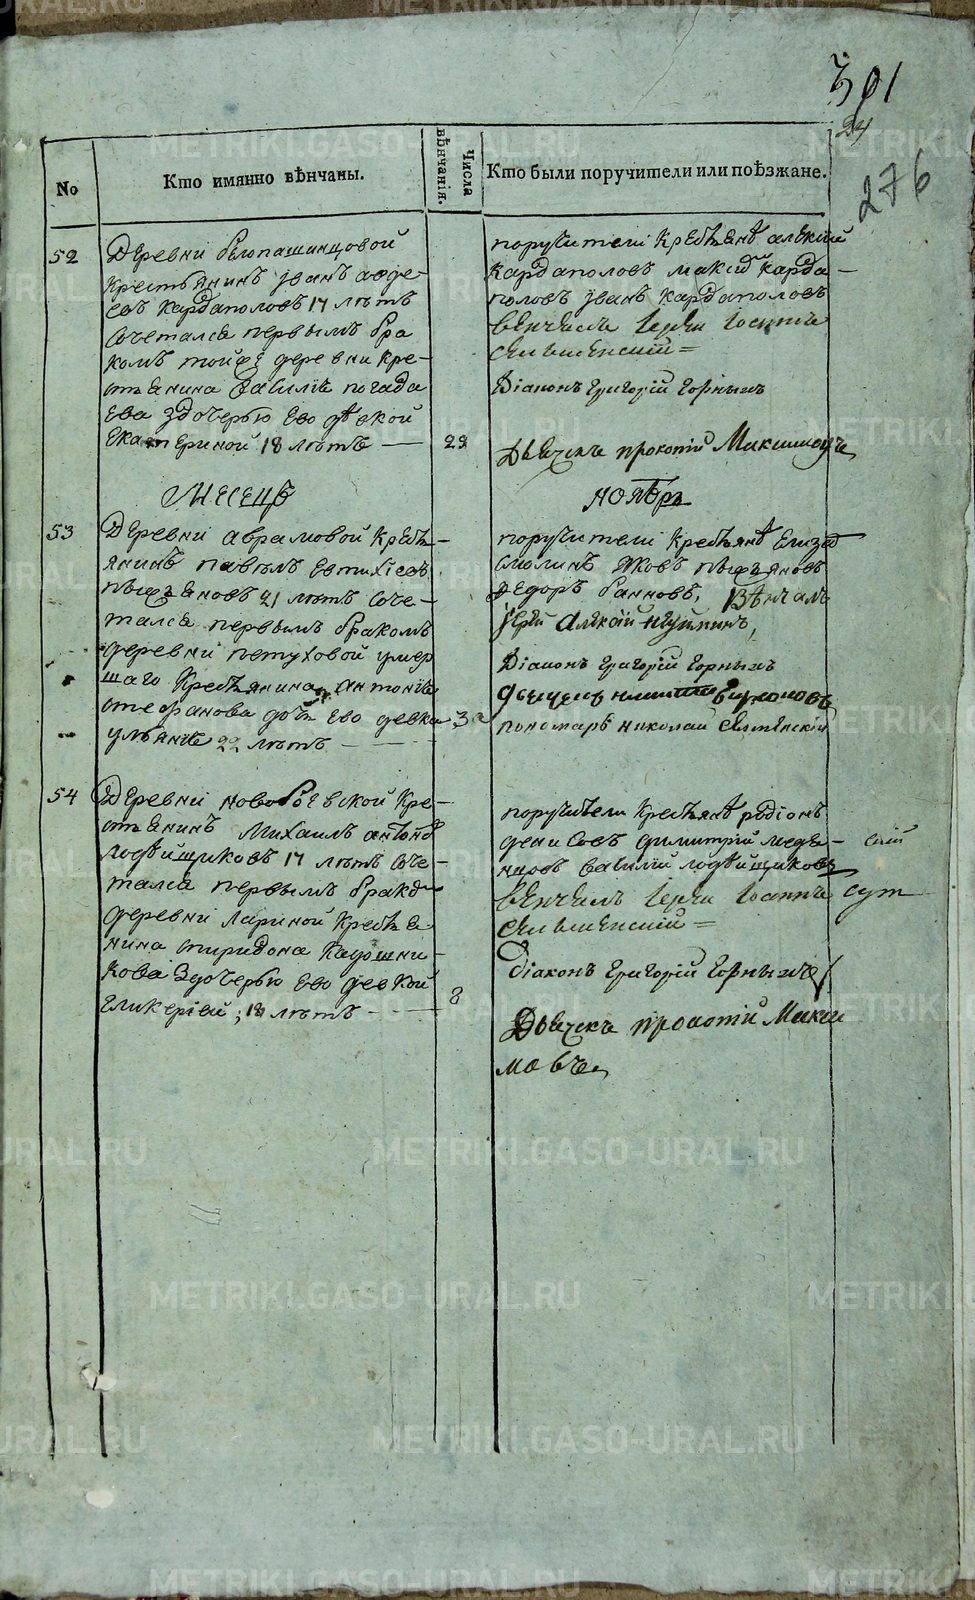 301
24
276
№
Кто имянно вѣнчаны.
Числа вѣнчанія.
Кто были поручители или поѣзжане.
52
Деревни белопашинцовой
крестьянинъ Іванъ авде-
евъ кардаполовъ 17 лѣтъ
сочетался первымъ бра
комъ тойже деревни кре-
стьянина Василія погада
ева здочерью ево дѣвкой
Екатериной 18 лѣтъ
29
поручители крестьянѣ алексѣй
кардаполовъ максим карда-
половъ Іванъ кардаполовъ
венчалъ Іерей Іоаннъ
Діаконъ Григорій Горныхъ
Дьячекъ прокопій Максимовъ
Месецъ
ноябрь
53
Деревни аврамовой крестъ-
янинъ павелъ евтихіевъ
21 лѣтъ соче-
тался первымъ бракомъ
деревни петуховой умер
шаго крестьянина антонія
стефанова дочь ево девка
ульяніе 22 лѣтъ
3
поручители крестьянѣ
смолинъ яковъ
федоръ банновъ, вѣнчалъ
Іерей алексій
Діаконъ Григорій Горныхъ
пономарь николай
54
Деревни
стьянинъ Михаилъ антонов
17 лѣтъ соче-
тался первымъ браком
деревни лариной крестья
нина спиридона кадошни-
кова здочерью ево девкой
гликеріей, 18 лѣтъ
8
поручители крестьянѣ родіонъ
денисовъ димитрій медве-
василій
венчалъ Іерей Іоаннъ
Діаконъ Григорій Горныхъ
Дьячекъ прокопій Макси
мовъ
METRIKI.GASO-URAL.RU